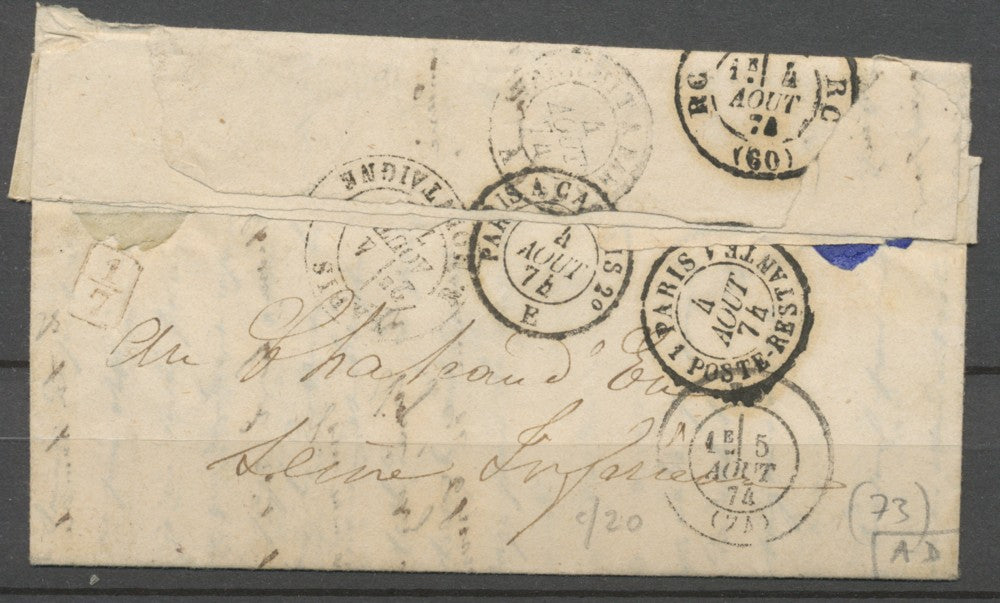 RC 1E 4 RC
AOUT
74
(60)
4
AOUT
74
MONTAIGNE
AOUT
PARIS A CALAIS 2º
4
AOUT
74
E
PARIS
4
AOUT
74
1 POSTE-RESTANTE 1
1/7
au Chateau d'Eu
Seine Inférieure
1E 5
AOUT
74
c/20
(73)
AD